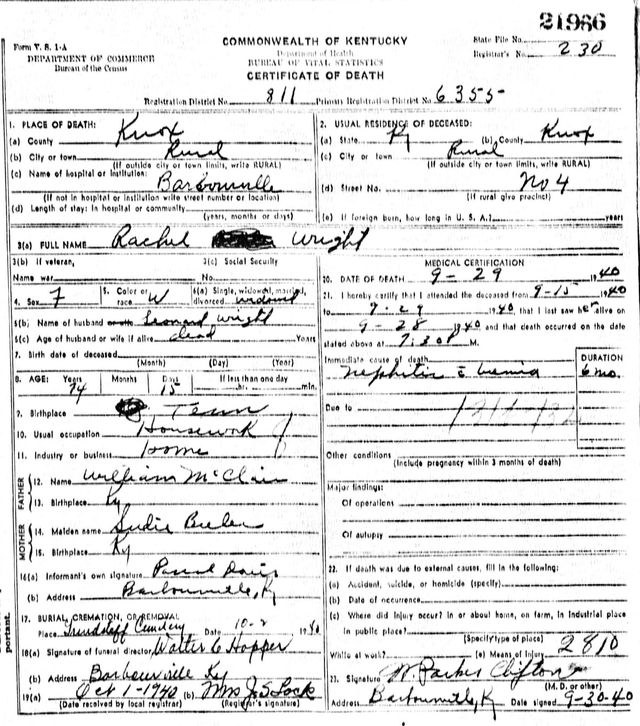 21986
Form V. S. 1-A
DEPARTMENT OF COMMERCE
Bureau of the Census
COMMONWEALTH OF KENTUCKY
Department of Health
BUREAU OF VITAL STATISTICS
CERTIFICATE OF DEATH
State File No.
Registrar's No. 230
Registration District No. 811 Primary Registration District No. 6355
1. PLACE OF DEATH:
(a) County Knox
(b) City or town Rural
(If outside city or town limits, write RURAL)
(c) Name of hospital or institution:
Barbourville
(If not in hospital or institution write street number or location)
(d) Length of stay: In hospital or community
(years, months or days)
2. USUAL RESIDENCE OF DECEASED:
(a) State Ky (b) County Knox
(c) City or town Rural
(If outside city or town limits, write RURAL)
(d) Street No. No 4
(If rural give precinct)
(e) If foreign born, how long in U. S. A.? years
3(a) FULL NAME Rachel Wright
3(b) If veteran,
Name war
3(c) Social Security
No.
4. Sex F
5. Color or race W
6(a) Single, widowed, married, divorced widowed
6(b) Name of husband or wife Leonard Wright
6(c) Age of husband or wife if alive dead Years
7. Birth date of deceased
(Month) (Day) (Year)
8. AGE: Years Months Days If less than one day
74 15 hr. min.
9. Birthplace Tenn
10. Usual occupation Housework
11. Industry or business Home
FATHER
12. Name William McClain
13. Birthplace Ky
MOTHER
14. Maiden name Sudie
15. Birthplace Ky
16(a) Informant's own signature Davis
(b) Address Barbourville, Ky
17. BURIAL, CREMATION, OR REMOVAL
Place Cemetery Date 10-2 1940
18(a) Signature of funeral director Walter C Hopper
(b) Address Barbourville Ky
19(a) Oct 1-1940 (b) Mrs J S Lock
(Date received by local registrar) (Registrar's signature)
portant.
MEDICAL CERTIFICATION
20. DATE OF DEATH 9-29 1940
21. I hereby certify that I attended the deceased from 9-15 1940
to 9-29 1940 that I last saw her alive on
9-28 1940 and that death occurred on the date
stated above at 7:30 M.
Immediate cause of death
DURATION
Nephritis 6 mo.
Due to
Other conditions
(Include pregnancy within 3 months of death)
Major findings:
Of operations
Of autopsy
22. If death was due to external causes, fill in the following:
(a) Accident, suicide, or homicide (specify)
(b) Date of occurrence
(c) Where did injury occur? In or about home, on farm, in industrial place
in public place?
(Specify type of place)
While at work? (e) Means of injury 2810
23. Signature W. Parker Clifton
(M. D. or other)
Address Barbourville, Ky Date signed 9-30-40